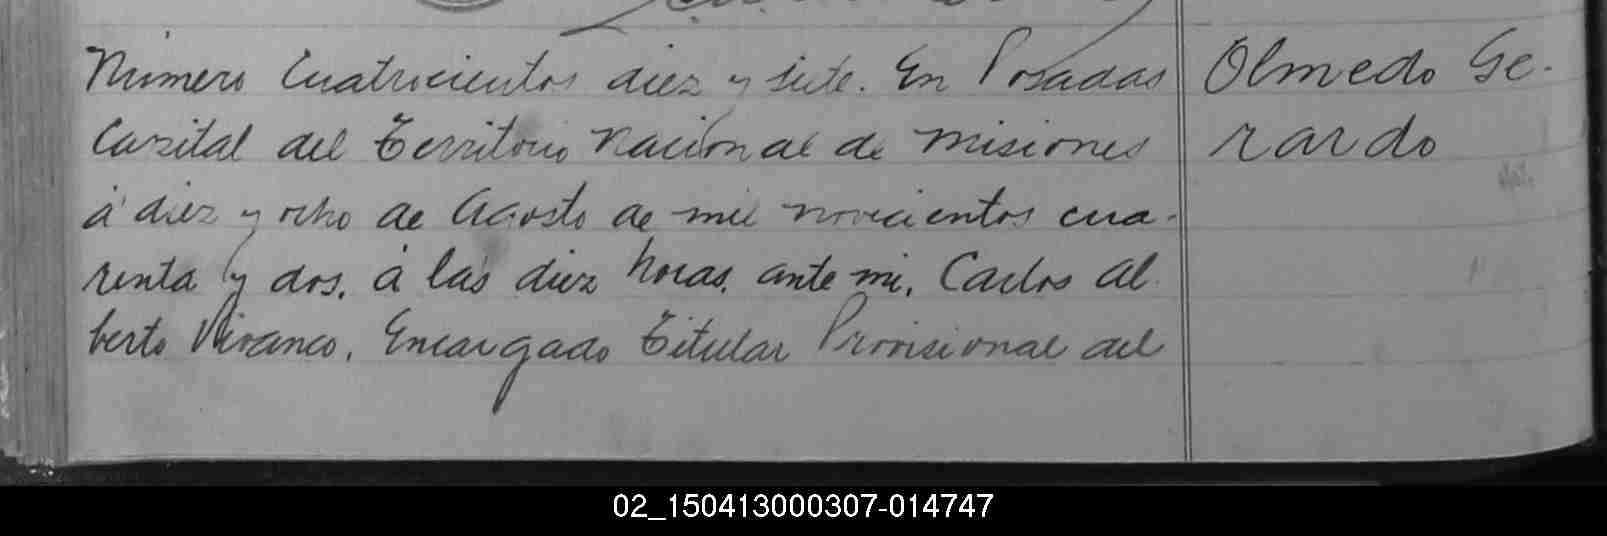 Número Cuatrocientos diez y siete. En Posadas
Capital del Territorio Nacional de Misiones
á diez y ocho de Agosto de mil novecientos cua-
renta y dos, á las diez horas, ante mi, Carlos Al-
berto Vivanco, Encargado Titular Provisional del
Olmedo Ge-
rardo
02_150413000307-014747